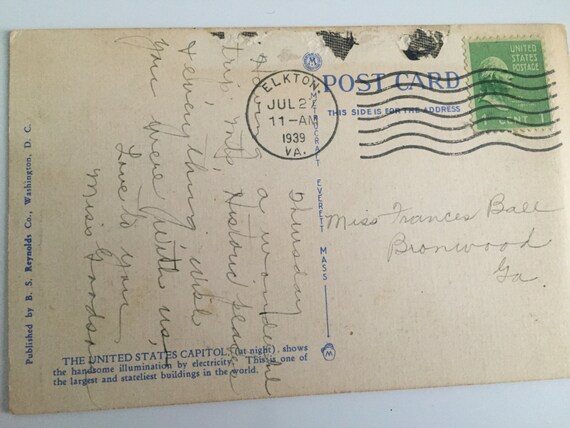 POST CARD
THIS SIDE IS FOR THE ADDRESS
UNITED
STATES
POSTAGE
1 CENT 1
ELKTON,
JUL 27
11-AM
1939
VA.
Miss Frances Ball
Bronwood
Ga
Thursday
Having a wonderful
trip, mts, Historic places
& everything, wish
you were with us,
Love to you,
Miss Goodson
METROCRAFT EVERETT MASS
Published by B. S. Reynolds Co., Washington, D. C.
THE UNITED STATES CAPITOL, (at night), shows
the handsome illumination by electricity. This is one of
the largest and stateliest buildings in the world.